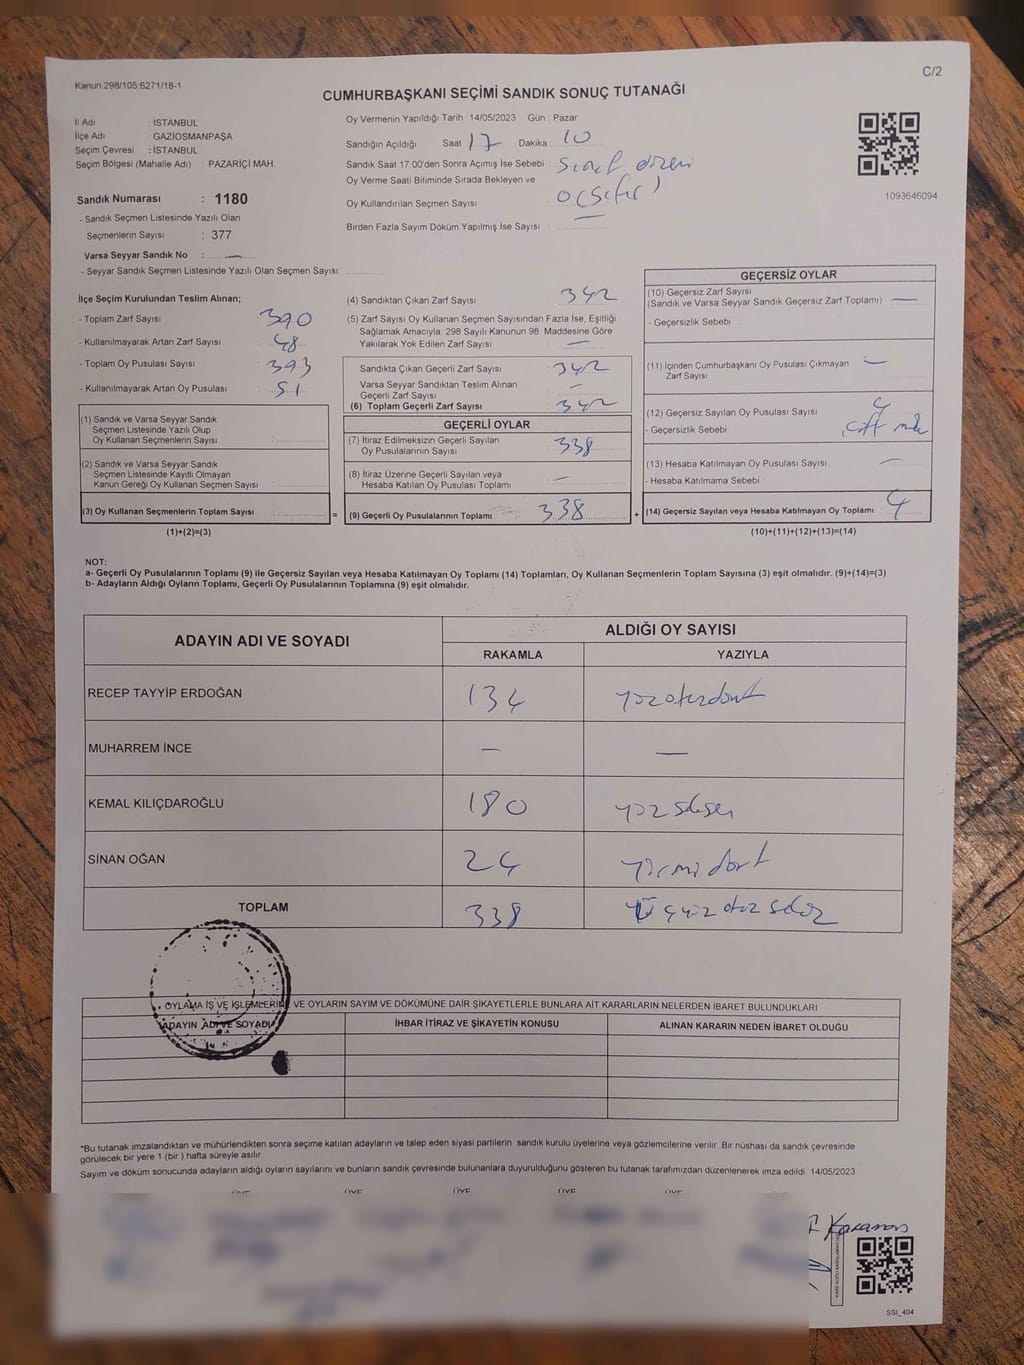 Kanun:298/105;6271/18-1
C/2
CUMHURBAŞKANI SEÇİMİ SANDIK SONUÇ TUTANAĞI
İl Adı : İSTANBUL
İlçe Adı : GAZİOSMANPAŞA
Seçim Çevresi : İSTANBUL
Seçim Bölgesi (Mahalle Adı) : PAZARİÇİ MAH.
Sandık Numarası : 1180
- Sandık Seçmen Listesinde Yazılı Olan
Seçmenlerin Sayısı : 377
Varsa Seyyar Sandık No : —
- Seyyar Sandık Seçmen Listesinde Yazılı Olan Seçmen Sayısı:
Oy Vermenin Yapıldığı Tarih : 14/05/2023 Gün : Pazar
Sandığın Açıldığı Saat 17 Dakika : 10
Sandık Saat 17:00'den Sonra Açımış İse Sebebi : Sınıf düzeni
Oy Verme Saati Bitiminde Sırada Bekleyen ve
Oy Kullandırılan Seçmen Sayısı : 0 (Sıfır)
Birden Fazla Sayım Döküm Yapılmış İse Sayısı :
1093646094
İlçe Seçim Kurulundan Teslim Alınan;
- Toplam Zarf Sayısı : 390
- Kullanılmayarak Artan Zarf Sayısı : 48
- Toplam Oy Pusulası Sayısı : 393
- Kullanılmayarak Artan Oy Pusulası : 51
(1) Sandık ve Varsa Seyyar Sandık
Seçmen Listesinde Yazılı Olup
Oy Kullanan Seçmenlerin Sayısı :
(2) Sandık ve Varsa Seyyar Sandık
Seçmen Listesinde Kayıtlı Olmayan
Kanun Gereği Oy Kullanan Seçmen Sayısı :
(3) Oy Kullanan Seçmenlerin Toplam Sayısı :
(1)+(2)=(3)
(4) Sandıktan Çıkan Zarf Sayısı : 342
(5) Zarf Sayısı Oy Kullanan Seçmen Sayısından Fazla İse, Eşitliği
Sağlamak Amacıyla; 298 Sayılı Kanunun 98. Maddesine Göre
Yakılarak Yok Edilen Zarf Sayısı : —
Sandıkta Çıkan Geçerli Zarf Sayısı : 342
Varsa Seyyar Sandıktan Teslim Alınan
Geçerli Zarf Sayısı : —
(6) Toplam Geçerli Zarf Sayısı : 342
GEÇERLİ OYLAR
(7) İtiraz Edilmeksizin Geçerli Sayılan
Oy Pusulalarının Sayısı : 338
(8) İtiraz Üzerine Geçerli Sayılan veya
Hesaba Katılan Oy Pusulası Toplamı : —
= (9) Geçerli Oy Pusulalarının Toplamı : 338 +
GEÇERSİZ OYLAR
(10) Geçersiz Zarf Sayısı
(Sandık ve Varsa Seyyar Sandık Geçersiz Zarf Toplamı) : —
- Geçersizlik Sebebi :
(11) İçinden Cumhurbaşkanı Oy Pusulası Çıkmayan
Zarf Sayısı : —
(12) Geçersiz Sayılan Oy Pusulası Sayısı : 4
- Geçersizlik Sebebi : çift
(13) Hesaba Katılmayan Oy Pusulası Sayısı : —
- Hesaba Katılmama Sebebi :
(14) Geçersiz Sayılan veya Hesaba Katılmayan Oy Toplamı : 4
(10)+(11)+(12)+(13)=(14)
NOT:
a- Geçerli Oy Pusulalarının Toplamı (9) ile Geçersiz Sayılan veya Hesaba Katılmayan Oy Toplamı (14) Toplamları, Oy Kullanan Seçmenlerin Toplam Sayısına (3) eşit olmalıdır. (9)+(14)=(3)
b- Adayların Aldığı Oyların Toplamı, Geçerli Oy Pusulalarının Toplamına (9) eşit olmalıdır.
ADAYIN ADI VE SOYADI
ALDIĞI OY SAYISI
RAKAMLA YAZIYLA
RECEP TAYYİP ERDOĞAN 134 yüzotuzdört
MUHARREM İNCE — —
KEMAL KILIÇDAROĞLU 180 yüzseksen
SİNAN OĞAN 24 yirmidört
TOPLAM 338 Üçyüz otuz sekiz
OYLAMA İŞ VE İŞLEMLERİNE VE OYLARIN SAYIM VE DÖKÜMÜNE DAİR ŞİKAYETLERLE BUNLARA AİT KARARLARIN NELERDEN İBARET BULUNDUKLARI
ADAYIN ADI VE SOYADI İHBAR İTİRAZ VE ŞİKAYETİN KONUSU ALINAN KARARIN NEDEN İBARET OLDUĞU
*Bu tutanak imzalandıktan ve mühürlendikten sonra seçime katılan adayların ve talep eden siyasi partilerin sandık kurulu üyelerine veya gözlemcilerine verilir. Bir nüshası da sandık çevresinde
görülecek bir yere 1 (bir) hafta süreyle asılır.
Sayım ve döküm sonucunda adayların aldığı oyların sayılarını ve bunların sandık çevresinde bulunanlara duyurulduğunu gösteren bu tutanak tarafımızdan düzenlenerek imza edildi. 14/05/2023
ÜYE ÜYE ÜYE ÜYE ÜYE
SSI_404